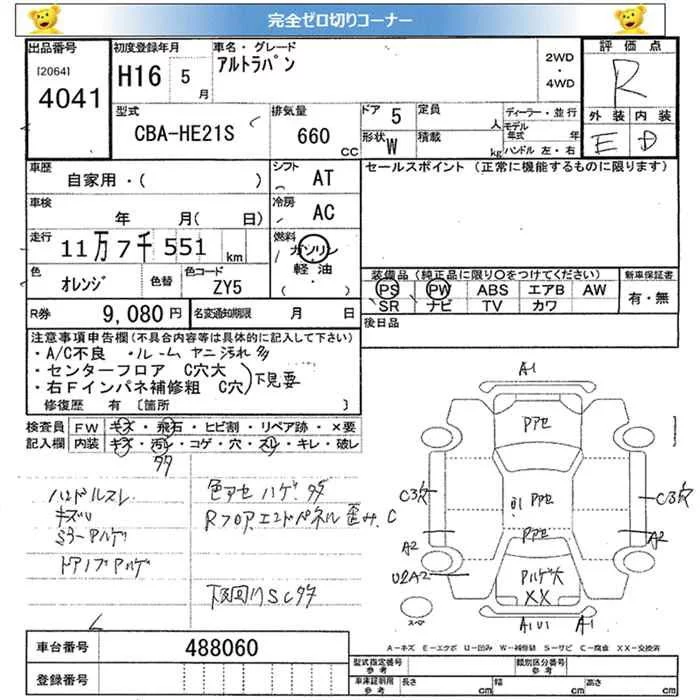 完全ゼロ切りコーナー
出品番号
[2064]
4041
初度登録年月
H16 5 月
車名・グレード
アルトラパン
2WD
・
4WD
評価点
R
外装 内装
E D
型式
CBA-HE21S
排気量
660 CC
ドア 5
形状 W
定員 人
積載 kg
ディーラー・並行
モデル年式 年
ハンドル 左・右
車歴
自家用・( )
シフト
AT
セールスポイント (正常に機能するものに限ります)
車検
年 月( 日)
冷房
AC
走行
11万7千551 km
燃料
ガソリン
軽油
( ・ )
色
オレンジ
色替
色コード
ZY5
装備品 (純正品に限り○をつけてください)
PS PW ABS エアB AW
SR ナビ TV カワ
新車保証書
有・無
R券
9,080 円
名変通知期限 月 日
後日品
注意事項申告欄 (不具合内容等は具体的に記入して下さい)
・A/C不良 ・ルーム ヤニ汚れ 多
・センターフロア C穴大
・右Fインパネ補修粗 C穴
下見要
修復歴 有 〔箇所 〕
検査員
記入欄
FW キズ・飛石・ヒビ割・リペア跡・×要
内装 キズ・汚レ・コゲ・穴・スレ・キレ・破レ
多
ハンドルスレ
キズU
ミラーアルゲ
ドアノブアルゲ
色アセ ハゲ 多
Rフロアエンドパネル 歪み C
下廻りSC多
A1
Pアセ
C3穴
Pアセ
C3穴
Pアセ
A2
A2
U2A2
アルゲ大
XX
スペア
A1U1
A1
車台番号
488060
登録番号
A-キズ E-エクボ U-凹み W-補修跡 S-サビ C-腐食 XX-交換済
型式指定番号
参考
類別区分番号
参考
車庫証明用
参考
長さ cm
幅 cm
高さ cm